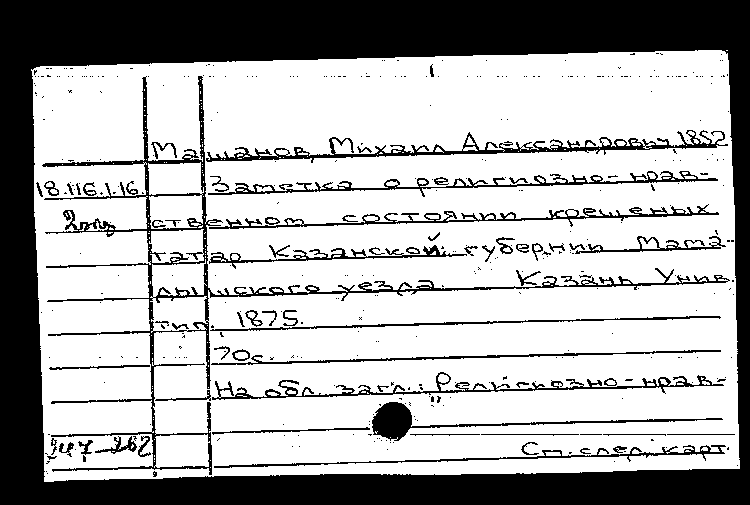 Машанов, Михаил Александрович, 1852-
18.116.1.16. Заметка о религиозно-нрав-
2 экз ственном состоянии крещеных
татар Казанской губернии Мама-
дышского уезда. Казань, Унив.
тип., 1875.
70 с.
На обл. загл.: "Религиозно-нрав-
См. след. карт.